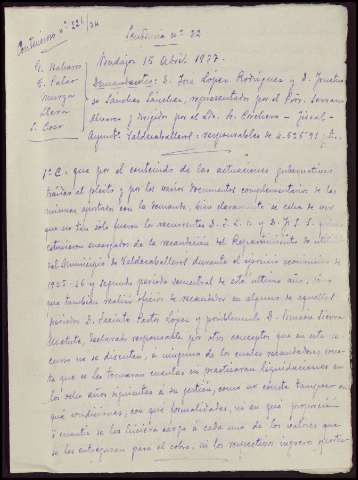 Contencioso nº 226/34
Sentencia nº 22
Badajoz 15 Abril 1937.
G. Navarro
G. Palao
Murga
Llera
S. Coco
Demandantes: D. José López Rodríguez y D. 
Sánchez Sánchez, representados por el Proc. Serrano
Álvarez y dirigido por el Ldo. A. Cordero - fiscal -
Ayunto Valdecaballeros: responsables de 4.525'91
1º C: que por el contenido de las actuaciones gubernativas
traídas al pleito y por los varios documentos complementarios de las
mismas aportados con la demanda, bien claramente se echa de ver
que no tan sólo fueron los recurrentes D. J. L. R. y D. J. S. S. quienes
estuvieron encargados de la recaudación del Repartimiento de
del Municipio de Valdecaballeros durante el ejercicio económico de
1925-26 y segundo período semestral de este último año, sino
que también realizó oficios de recaudador en alguno de aquellos
períodos D. Jacinto Pastor López y posiblemente D. Román Sierra
declarado responsable por otros conceptos que en este re-
curso no se discuten, a ninguno de los cuales recaudadores cons-
ta que se les tomaran cuentas ni practicaran liquidaciones en
los ocho años siguientes á su gestión, como no consta tampoco en
qué condiciones, con qué formalidades, ni en qué proporción
ó cuantía se les hiciera cargo á cada uno de los valores que
se les entregaran para el cobro, ni los respectivos ingresos